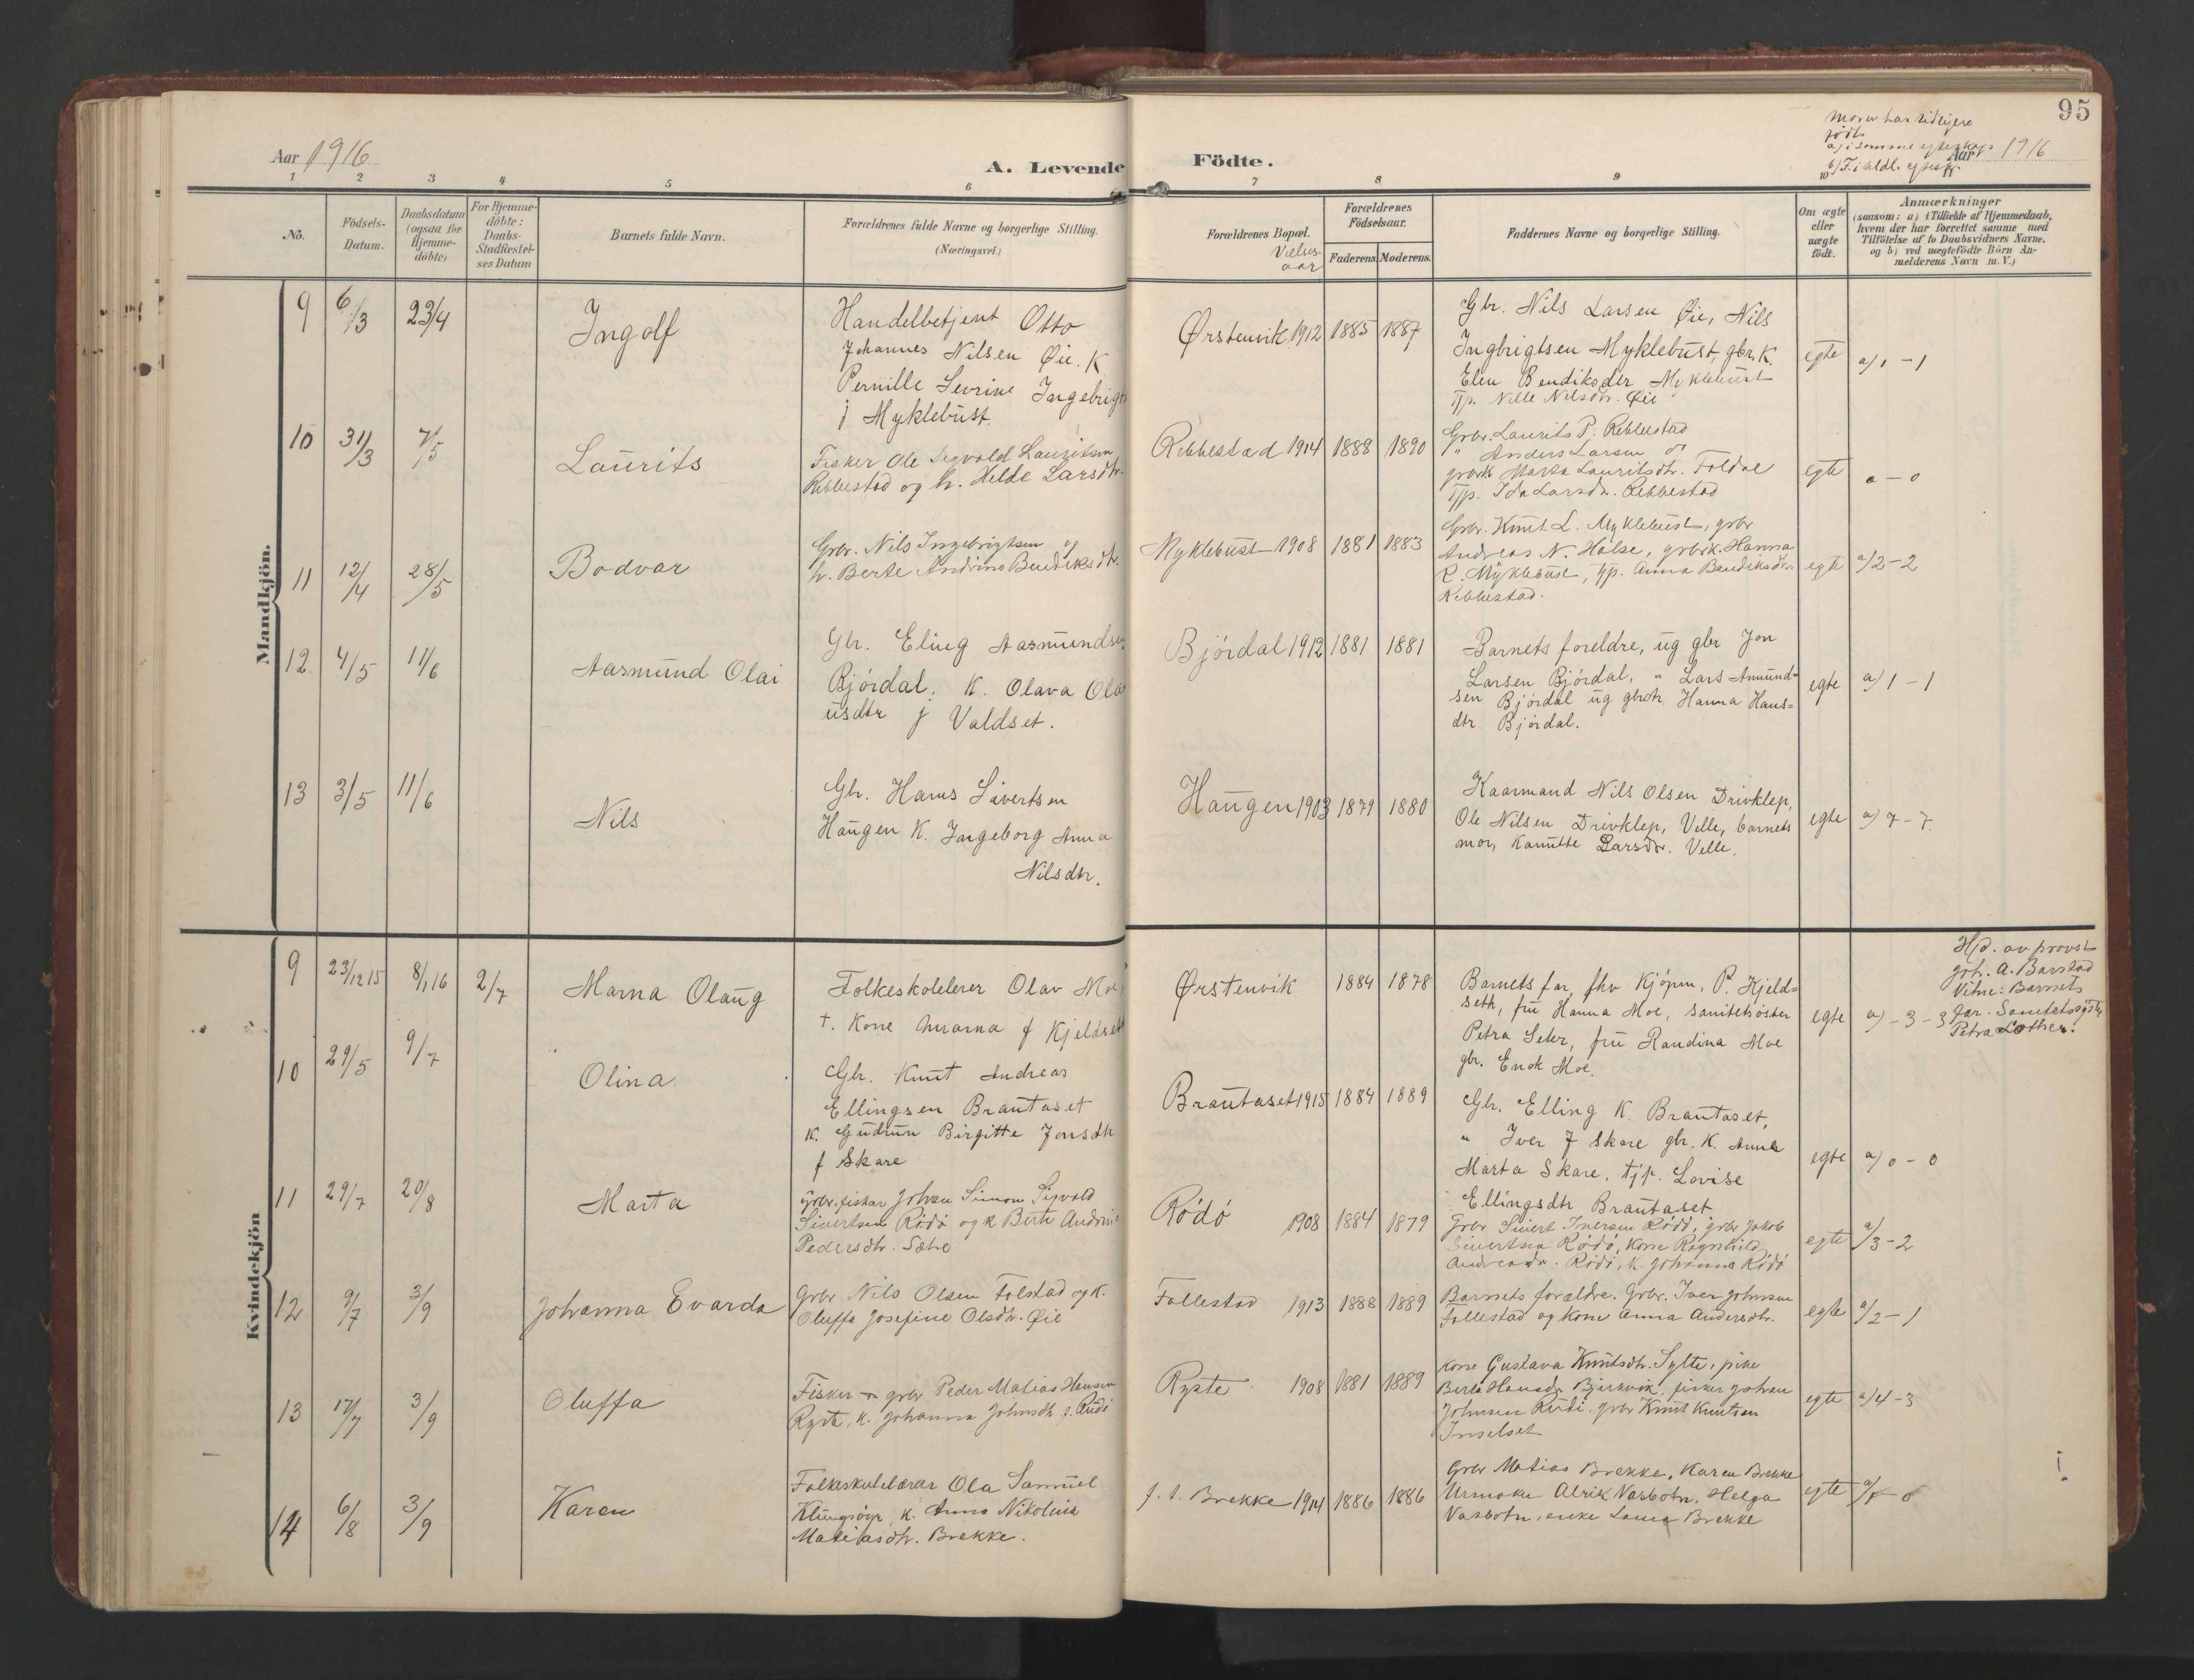 95
Aar 1916
A. Levende Födte.
Moren har tidligere
födt
a/ i samme egteskap
b/ F. i tidl. egtesk.
Aar 1916
1 2 3 4 5 6 7 8 9 10
No.
Födsels-
Datum.
Daabsdatum
(ogsaa for
Hjemme-
döbte)
For Hjemme-
döbte:
Daabs-
Stadfæstel-
ses Datum
Barnets fulde Navn.
Forældrenes fulde Navne og borgerlige Stilling.
(Næringsvei.)
Forældrenes Bopæl.
Vielses-
aar
Forældrenes
Födselsaar.
Faderens. Moderens.
Faddernes Navne og borgerlige Stilling.
Om ægte
eller
uægte
födt.
Anmærkninger
(saasom: a) i Tilfælde af Hjemmedaab,
hvem der har forrettet samme med
Tilföielse af to Daabsvidners Navne.
og b) ved uægtefödte Börn An-
melderens Navn m. V.)
Mandkjön.
9 6/3 23/4 Ingolf
Handelbetjent Otto
Johannes Nilsen Øie. K
Pernille Sevrine Ingebrigt
f Myklebust.
Ørstenvik 1912 1885 1887
Gbr. Nils Larsen Øie, Nils
Ingbrigtsen Myklebust, gbr. K.
Elen Bendiksdtr Myklebust
Tjp. Nille Nilsdtr. Øie
egte a/ 1 – 1
10 31/3 7/5 Laurits
Fisker Ole Sigvald Lauritsen
Ribbestad og h. Helde Larsdtr.
Ribbestad 1914 1888 1890
Grbr. Laurits P. Ribbestad
" Anders Larsen do
grbrk Marta Lauritsdtr. Foldal
Tjp. Ida Larsdr. Ribbestad
egte 0 – 0
11 12/4 28/5 Bodvar
Grbr. Nils Ingebrigtsen og
h. Berte Andrine Bendiksdtr.
Myklebust 1908 1881 1883
Grbr. Knut L. Myklebust, grbr
Andreas N. Holse, grbrk. Hanna
R. Myklebust, tjp. Anna Bendiksdtr.
Ribbestad.
egte a/ 2 – 2
12. 4/5 11/6 Aasmund Olai
Gbr. Eling Aasmundsen
Bjórdal. K. Olava Ola
usdtr f Valdset.
Bjórdal 1912 1881 1881
Barnets foreldre, ug gbr Jon
Larsen Bjórdal, " Lars Amund-
sen Bjórdal ug gbrdtr Hanna Hans=
dtr Bjórdal.
egte a/ 1 – 1
13 3/5 11/6 Nils
Gbr. Hans Sivertsen
Haugen K. Ingeborg Anna
Nilsdtr.
Haugen 1903 1879 1880
Kaarmand Nils Olsen Drivklep,
Ole Nilsen Drivklep, Velle, barnets
mor, Kanutte Larsdr. Velle.
egte a/ 7 – 7
Kvindekjön
9 23/12 15 8/1 16 2/7 Marna Olaug
Folkeskolelerer Olav Moe
+. Kone Marna f Kjeldset
Ørstenvik 1884 1878
Barnets far, fhv Kjöpm. P. Kjeld=
seth, fru Hanna Moe, sanitetsöster
Petra Seter, fru Randina Moe
gbr. Enok Moe.
egte a/ – 3 – 3
Hjd. av provst
Joh. A. Barstad
Vitne: Barnets
far. Sanitetssöster
Petra Sother.
10 29/5 9/7 Olina
Gbr. Knut Andreas
Ellingsen Brautaset
K. Gudrun Birgitte Jonsdtr
f Skare
Brautaset 1915 1884 1889
Gbr. Elling K. Brautaset,
" Iver J Skare gbr. K. Anna
Marta Skare. tjp. Lovise
Ellingsdtr Brautaset
egte a/ 0 – 0
11 29/7 20/8 Marta
Grbr. fiskar Johan Simon Sigvald
Sivertsen Rödö og k Berte Andrine
Pedersdtr. Sætre
Rödö 1908 1884 1879
Grbr Sivert Iversen Rödö, grbr Jakob
Sivertsen Rödö, Kone Ragnhild
Andreasdr. Rödö, K. Johanna Rödö
egte a/ 3 – 2
12 9/7 3/9 Johanna Evarda
Grbr Nils Olsen Folstad og k.
Oluffa Josefine Olsdtr. Øie
Follestad 1913 1888 1889
Barnets forældre. Grbr. Iver Johnsen
Follestad og kone Anna Andersdtr.
egte a/ 2 – 1
13 17/7 3/9 Oluffa
Fisker grbr Peder Matias Hansen
Ryste, k. Johanna Johnsdtr f. Rudi
Ryste 1908 1881 1889
Kone Gustava Knutsdtr. Sylte, pike
Berta Hansdr Bjerkvik, fisker Johan
Johnsen Rudi. grbr Knut Knutsen
Inselset
egte a/ 4 – 3
14 6/8 3/9 Karen
Folkeskulelærar Ola Samuel
Klungsöyr, k. Anna Nikolina
Matiasdtr. Brekke.
f. t. Brekke 1914 1886 1886
Grbr Matias Brekke, Karen Brekke
Urmaker Alrik Vasbotn, Helga
Vasbotn, enke Brekke
egte a/ – 0